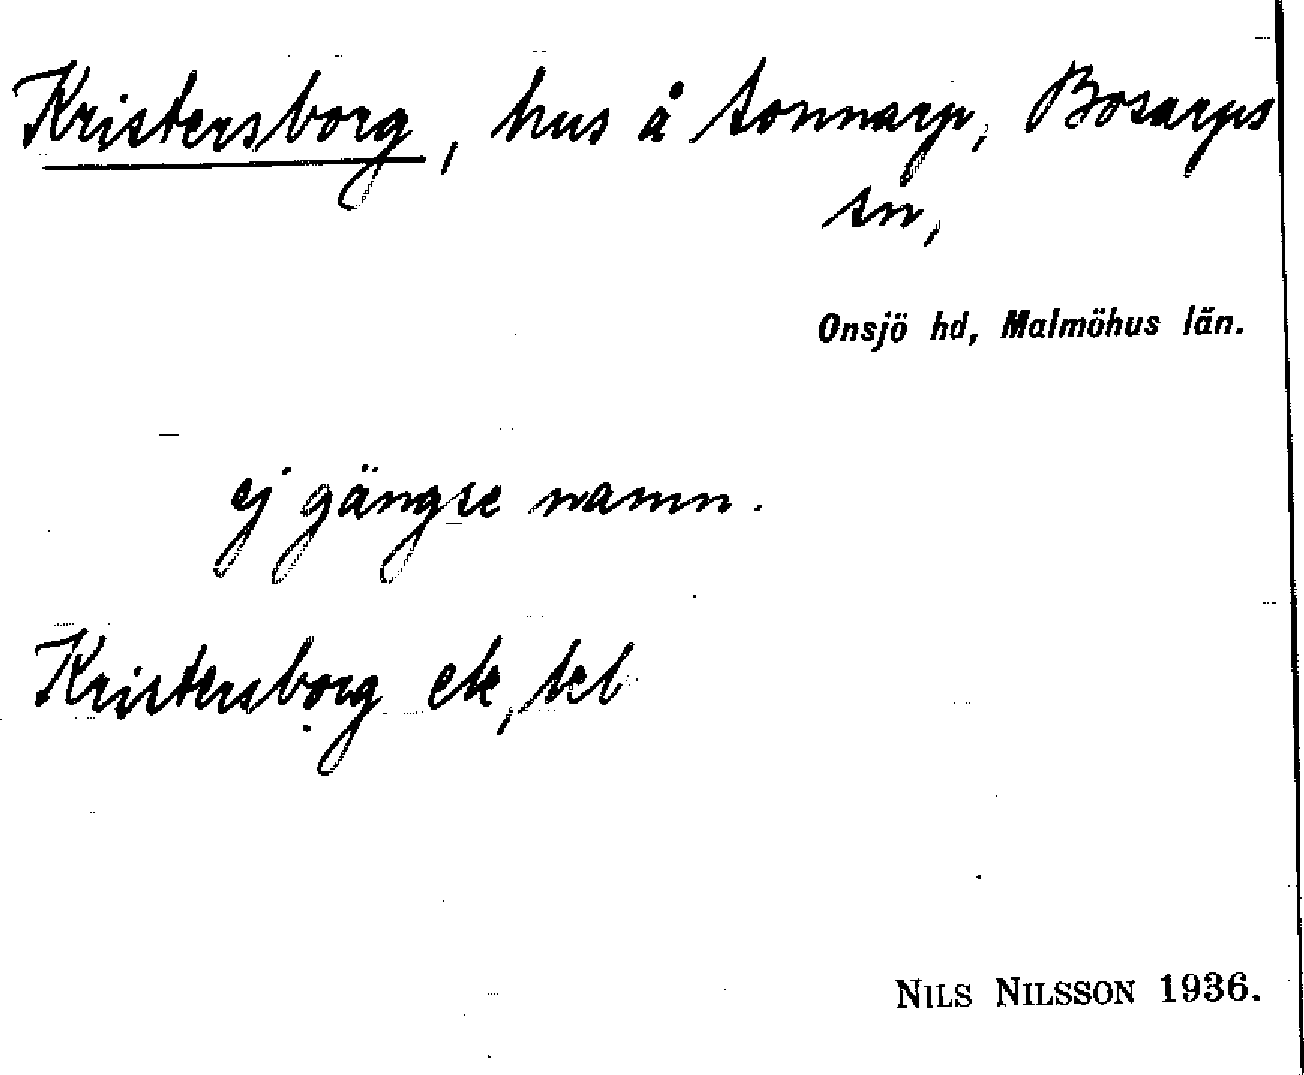 Kristersborg, hus å Sonnarp, Bosarps
sn,
Onsjö hd, Malmöhus län.
ej gängse namn.
Kristersborg ek, tel
NILS NILSSON 1936.